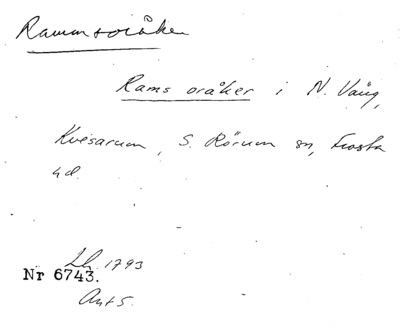 Ramm soråker
Rams oråker i N. Vång,
Kvesarum, S. Rörum sn, Frosta
hd.
Lh. 1793
Nr 6743.
Ant 5.